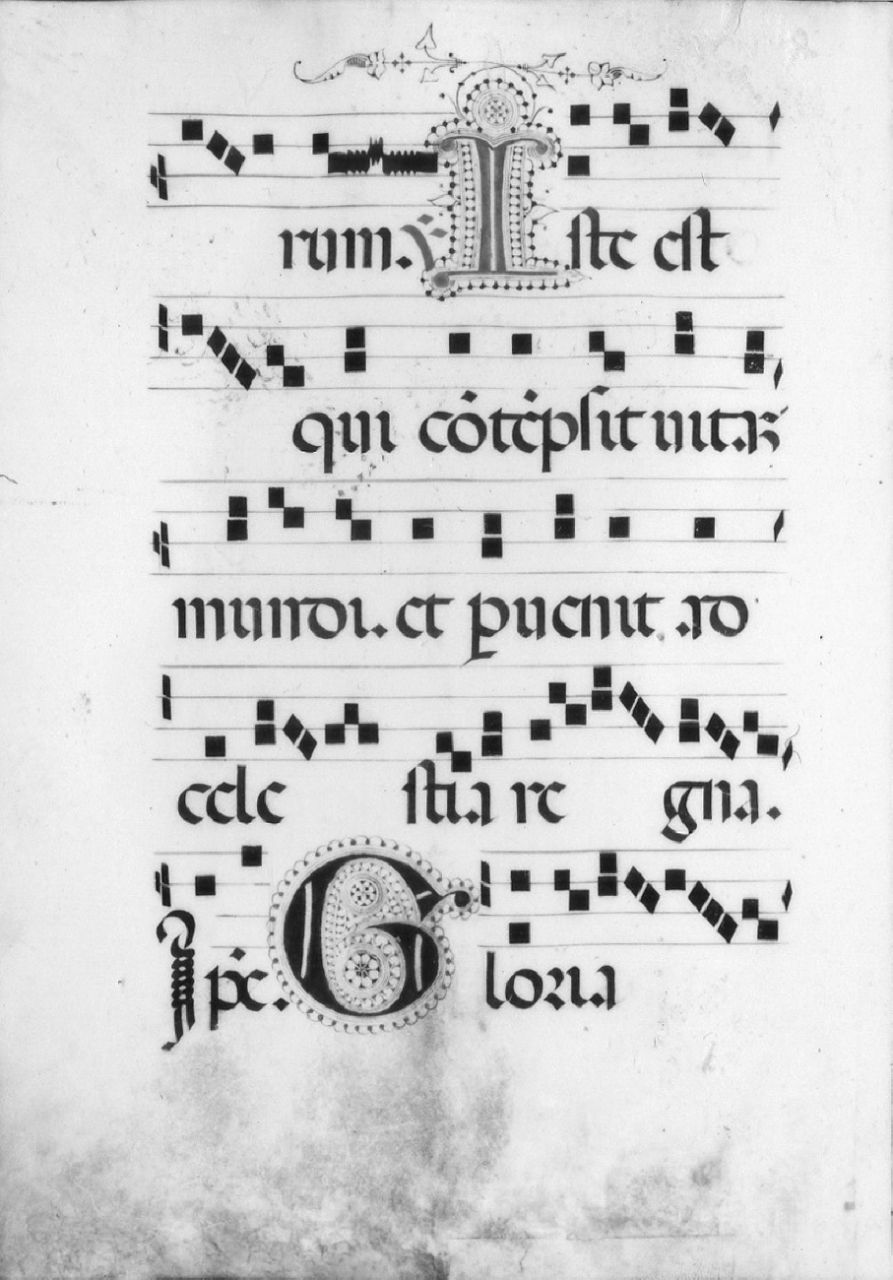 rum. ℣ Iste est
qui cōtēpsit uitaꝫ
mundi. et ꝑuenit ad
cele stia re gna.
Ipe. Gloria